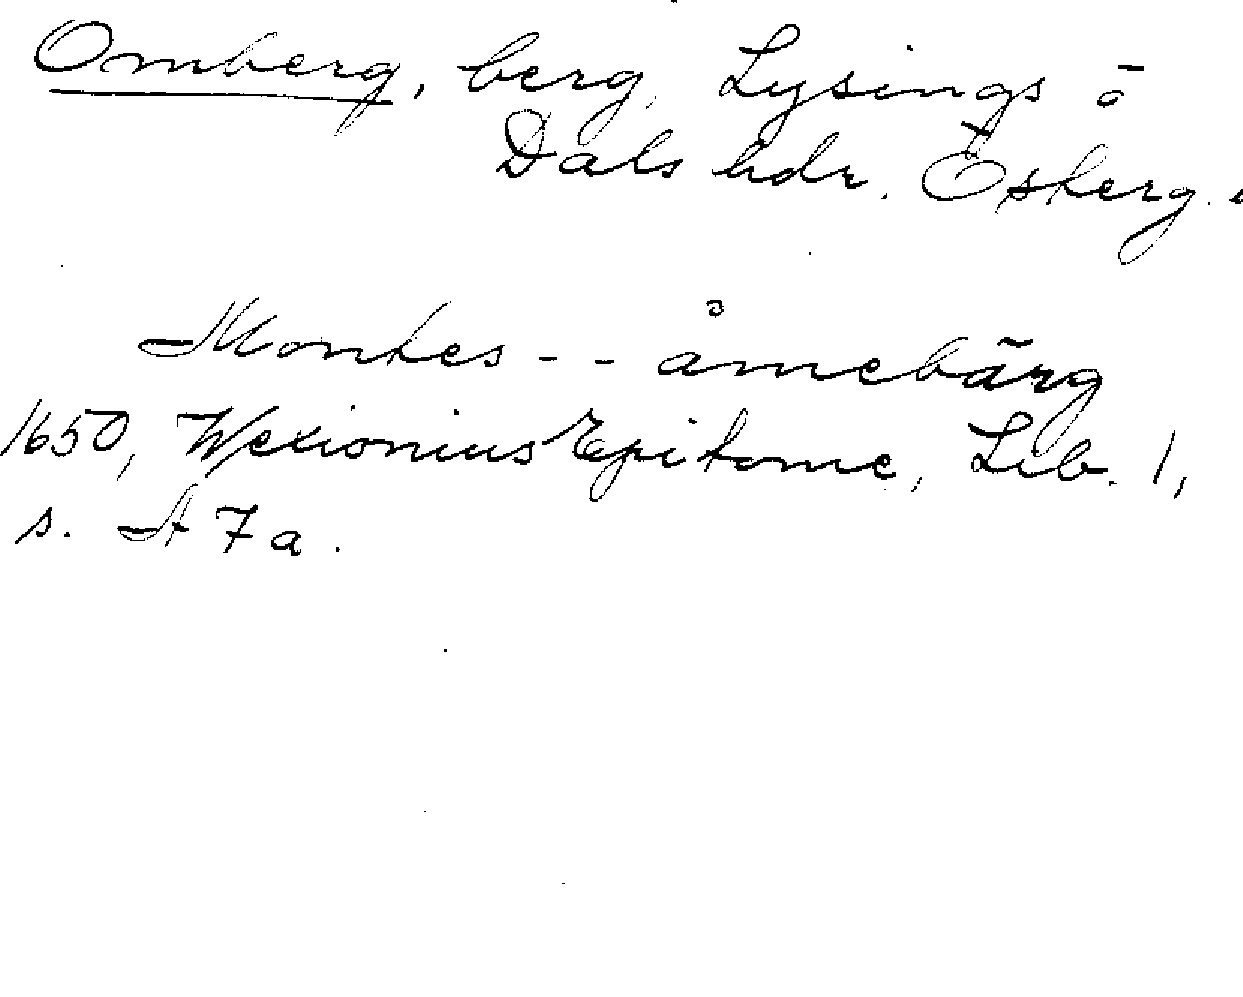 Omberg, berg, Lysings o
Dals hdr. Österg.
Montes - - åmebärg
1650, Wexionius Epitome, Lib. 1,
s. A 7 a.